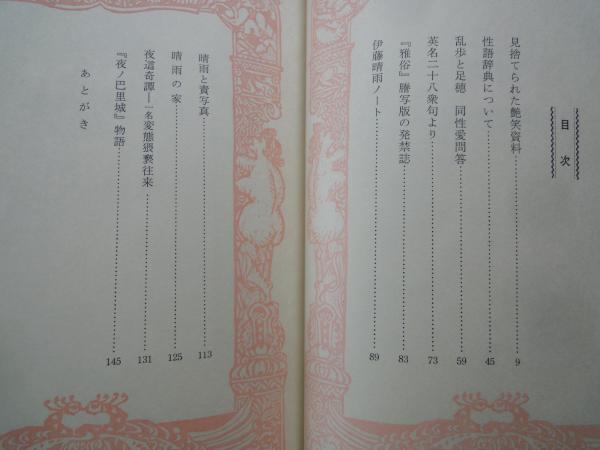 目次
見捨てられた艶笑資料……………………9
性語辞典について……………………45
乱歩と足穂　同性愛問答……………………59
英名二十八衆句より……………………73
『雅俗』謄写版の発禁誌……………………83
伊藤晴雨ノート……………………89
晴雨と責写真……………………113
晴雨の家……………………125
夜這奇譚―一名変態猥褻往来……………………131
『夜ノ巴里城』物語……………………145
あとがき